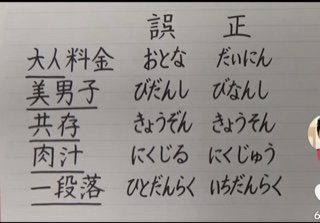 誤 正
大人料金 おとな だいにん
美男子 びだんし びなんし
共存 きょうぞん きょうそん
肉汁 にくじる にくじゅう
一段落 ひとだんらく いちだんらく